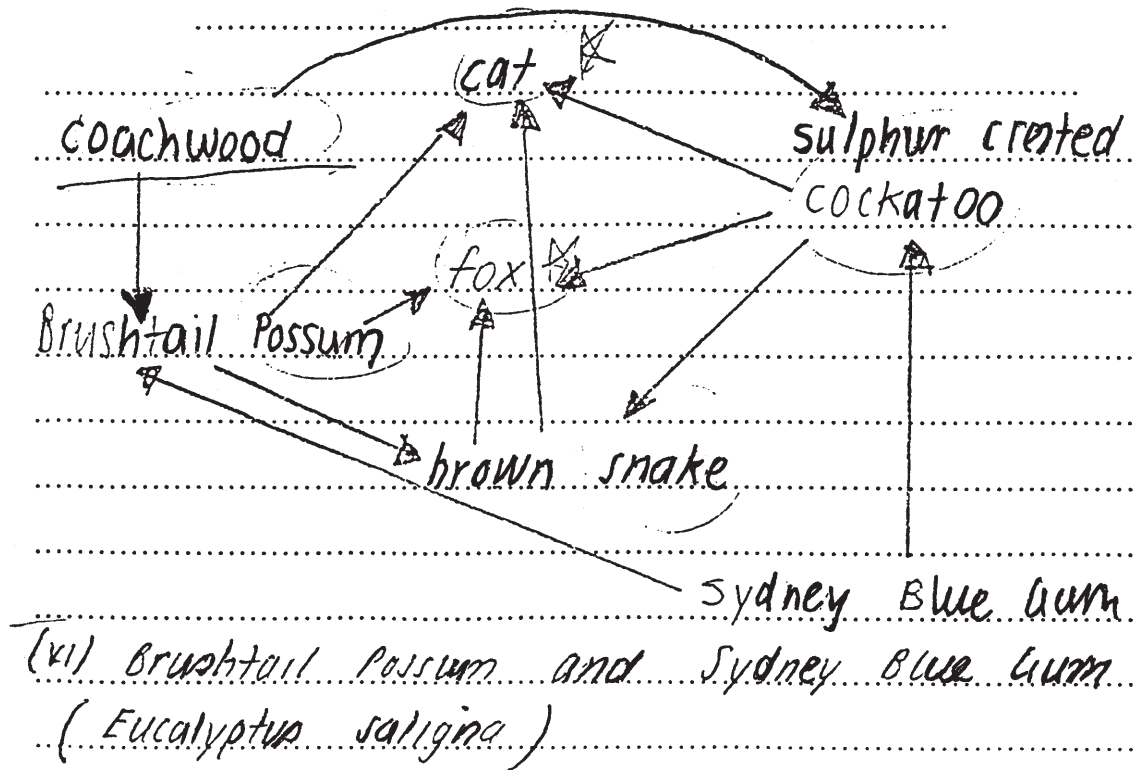 cat
coachwood
sulphur crested
cockatoo
fox
Brushtail Possum
brown snake
Sydney Blue Gum
(vi) Brushtail Possum and Sydney Blue Gum
(Eucalyptus saligna)